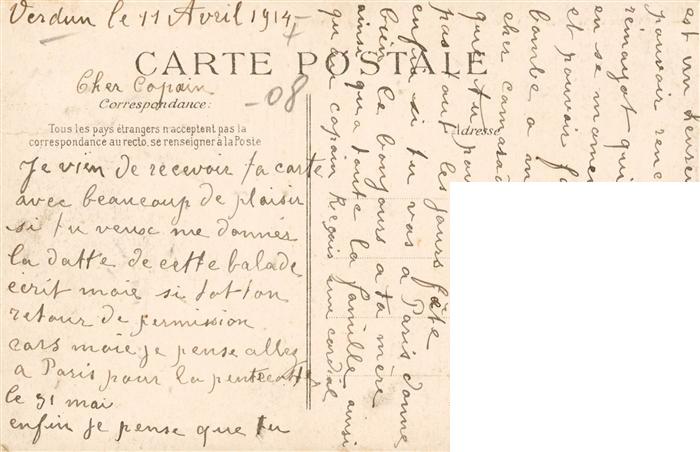 Verdun le 11 Avril 1914
CARTE POSTALE
Cher Copain
-08
Correspondance:
Adresse
Tous les pays étrangers n'acceptent pas la
correspondance au recto, se renseigner à la Poste
Je vien de recevoir ta carte
avec beaucoup de plaisir
si tu veux me donnér
la datte de cette balade
écrit moie si totton
retour de permission
cars moie je pense allez
a Paris pour la pentecotte
le 31 mai
enfin je pense que tu
est un
pouvoir renc
qui
en se momen
et pouvoir fa
bombe a m
cher camarad
que tu pou
pas tout les jours fête
enfin si tu vas a Paris donne
bien le bonjours a ta mère
ainsi qua toute la famille ainsi
qu au copain Reçois une cordial